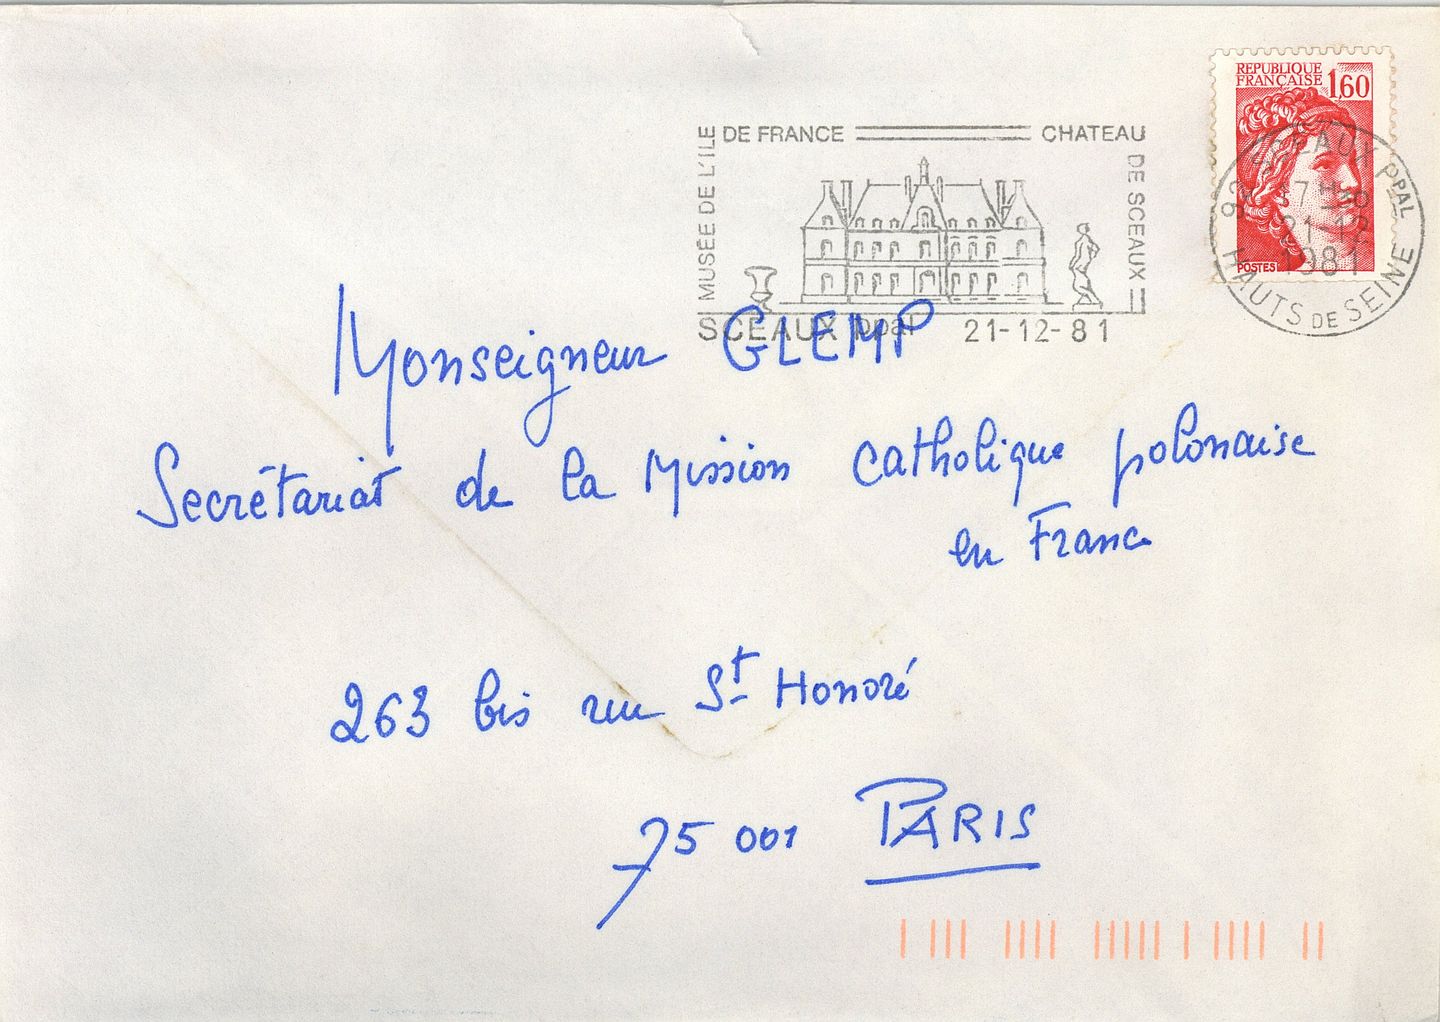 RÉPUBLIQUE
FRANÇAISE 1,60
POSTES
MUSÉE DE L'ILE DE FRANCE CHATEAU DE SCEAUX
SCEAUX ppal 21-12-81
92 SCEAUX PPAL
17 H
21-12
1981
HAUTS DE SEINE
Monseigneur GLEMP
Secrétariat de la Mission Catholique polonaise
en France
263 bis rue St Honoré
75 001 PARIS